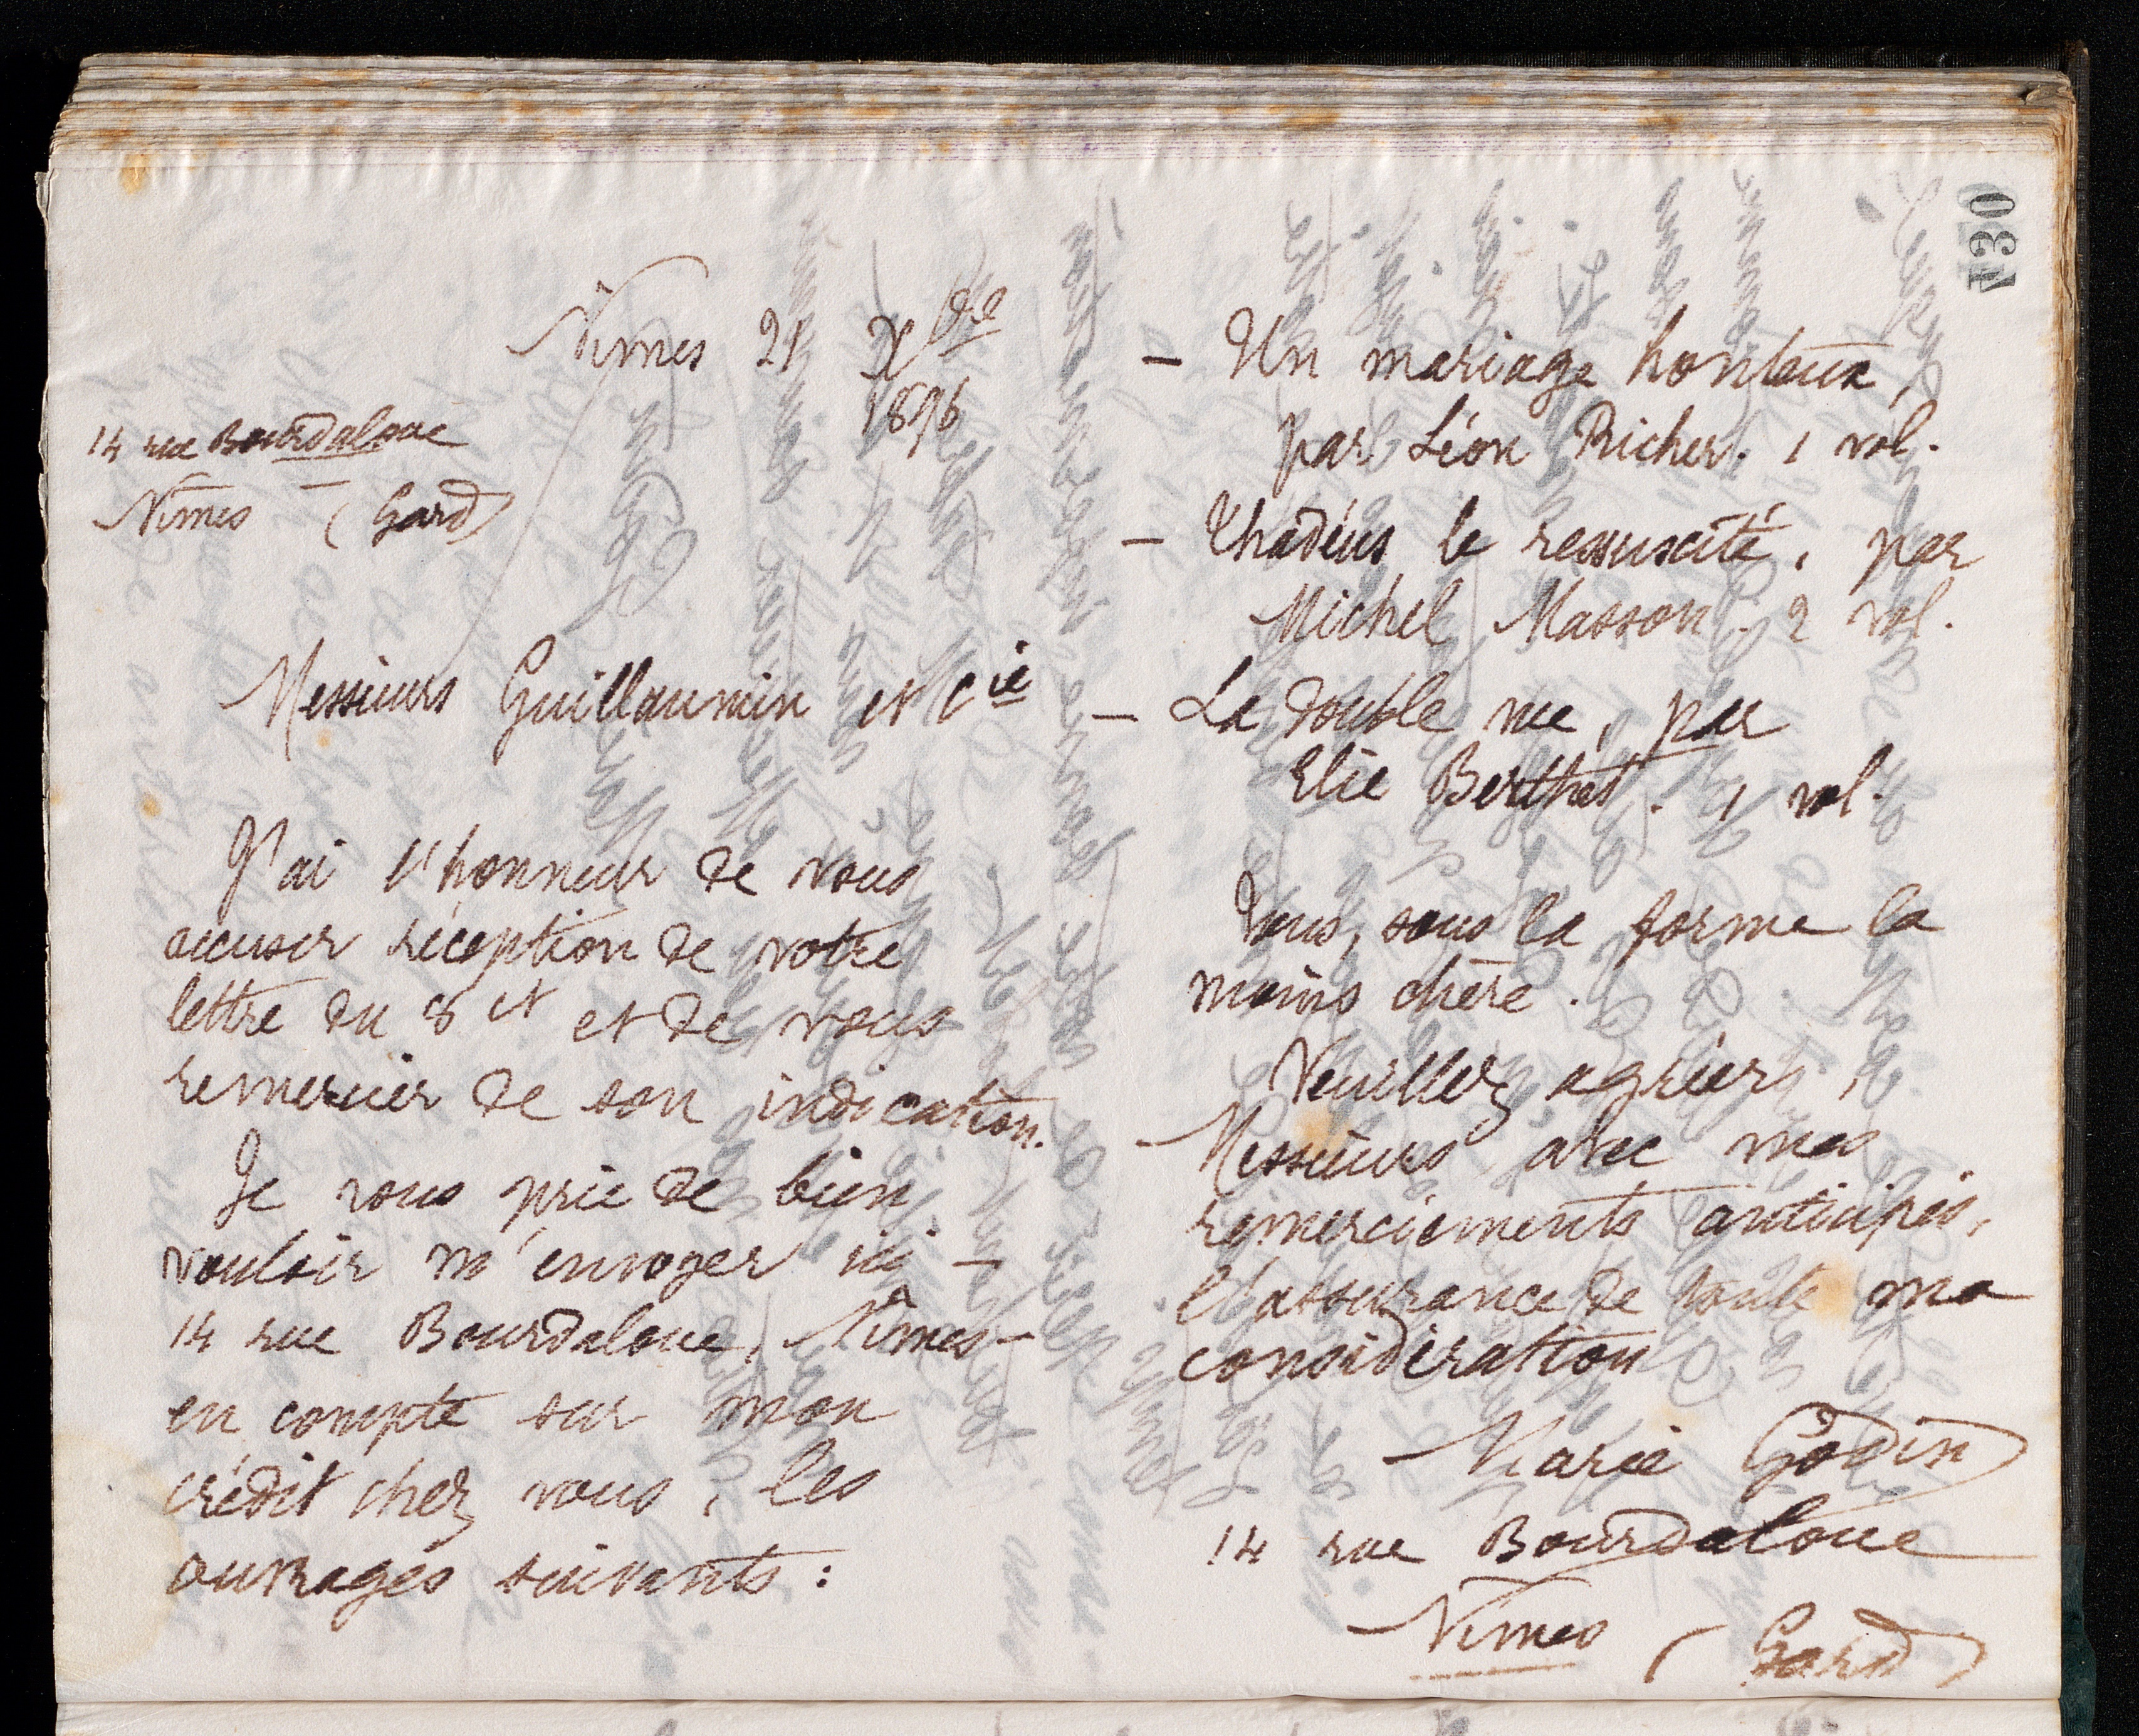 430
Nimes 21 Xbre
1896
14 rue Bourdaloue
Nîmes - (Gard)
Messieurs Guillaumin et Cie
J'ai l'honneur de vous
accuser réception de votre
lettre du 8 ct et de vous
remercier de son indication.
Je vous prie de bien
vouloir m'envoyer ici -
14 rue Bourdaloue, Nîmes -
en compte sur mon
crédit chez vous, les
ouvrages suivants :
- Un mariage honteux,
par Léon Richer. 1 vol.
- Thadéus le ressuscité, par
Michel Masson. 2 vol.
- La double vue, par
Elie Berthet. 1 vol.
Tous, sous la forme la
moins chère.
Veuillez agréer,
Messieurs avec mes
remerciements anticipés,
l'assurance de toute ma
considération
Marie Godin
14 rue Bourdaloue
Nîmes (Gard)